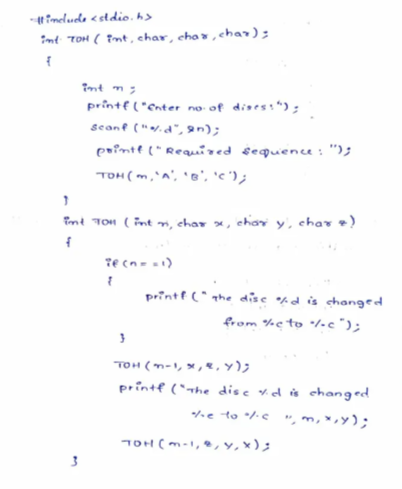 #include <stdio.h>
int TOH ( int, char, char, char);
{
int n ;
printf ("Enter no. of discs: ");
scanf ("%d", &n);
printf ("Required sequence : ");
TOH (n, 'A', 'B', 'C');
}
int TOH ( int n, char x, char y, char z)
{
if (n = =1)
{
printf (" The disc %d is changed
from %c to %c ");
}
TOH (n-1, x, z, y);
printf ("The disc %d is changed
%c to %c ", n, x, y);
TOH (n-1, z, y, x);
}